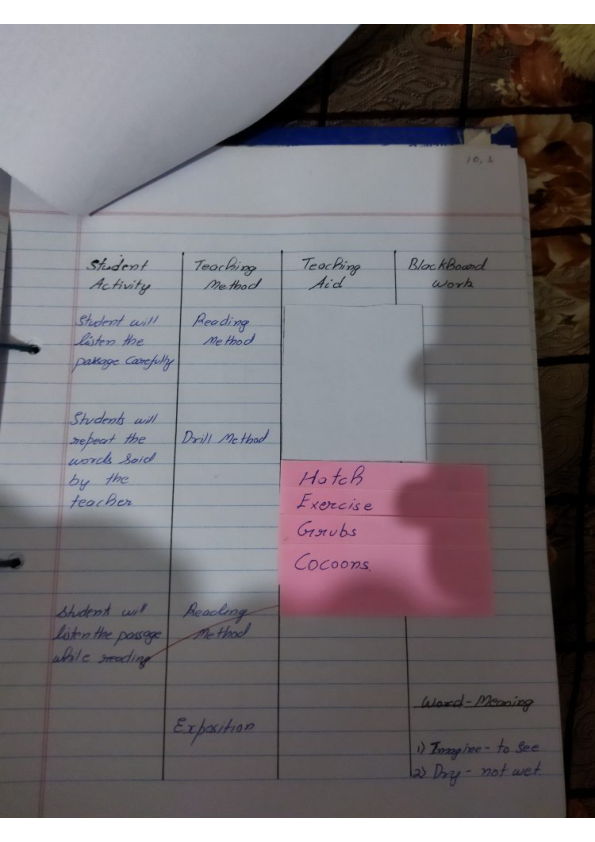 10, 3
Student Activity
Teaching Method
Teaching Aid
BlackBoard Work
Student will
listen the
passage Carefully
Reading
Method
Students will
repeat the
words said
by the
teacher
Drill Method
Hatch
Exercise
Grubs
Cocoons
Students will
listen the passage
while reading
Reading
Method
Exposition
Word-Meaning
1) Imagine - to see
2) Dry - not wet